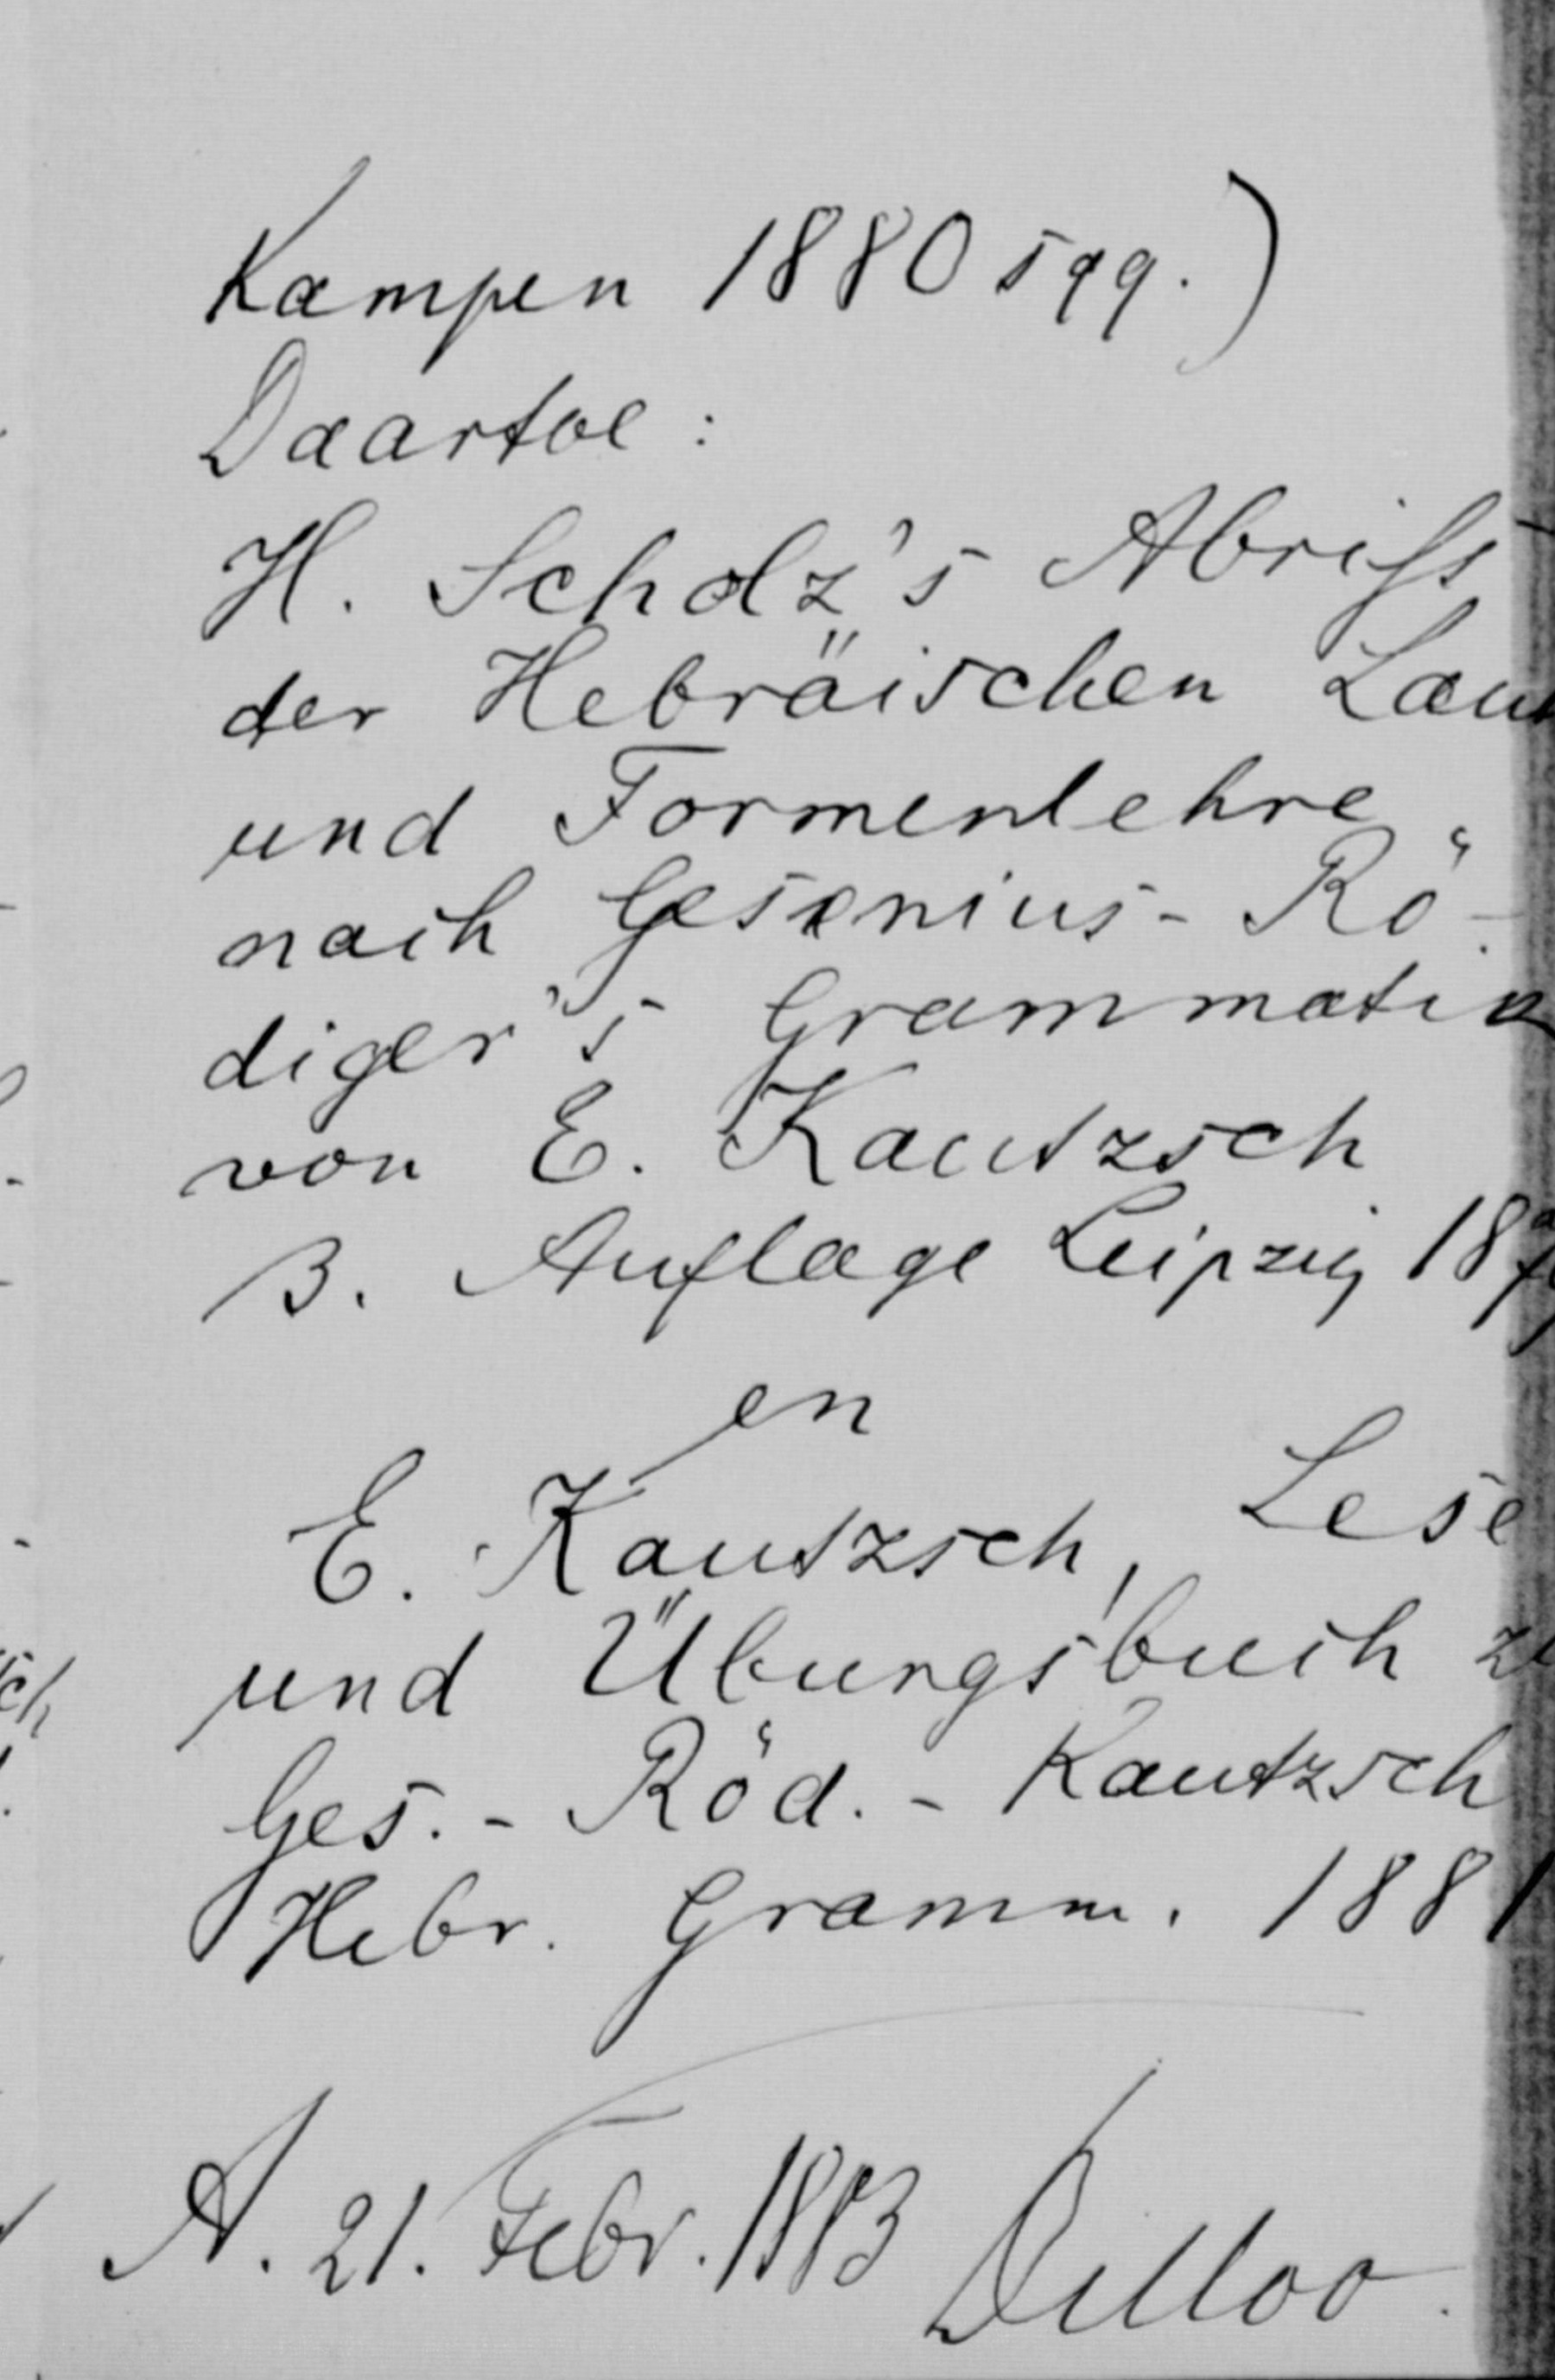 Kampen 1880 sqq.)
Daartoe:
H. Scholz's Abriss
der Hebräischen Laut
und Formenlehre
nach Gesenius-Rö-
diger's Grammatik
von E. Kautzsch
3. Auflage Leipzig 187
en
E. Kautzsch, Lese
und Übungsbuch zu
Ges.-Röd.-Kautzsch
Hebr. Gramm. 1881
A. 21. Febr. 1883 Dilloo.